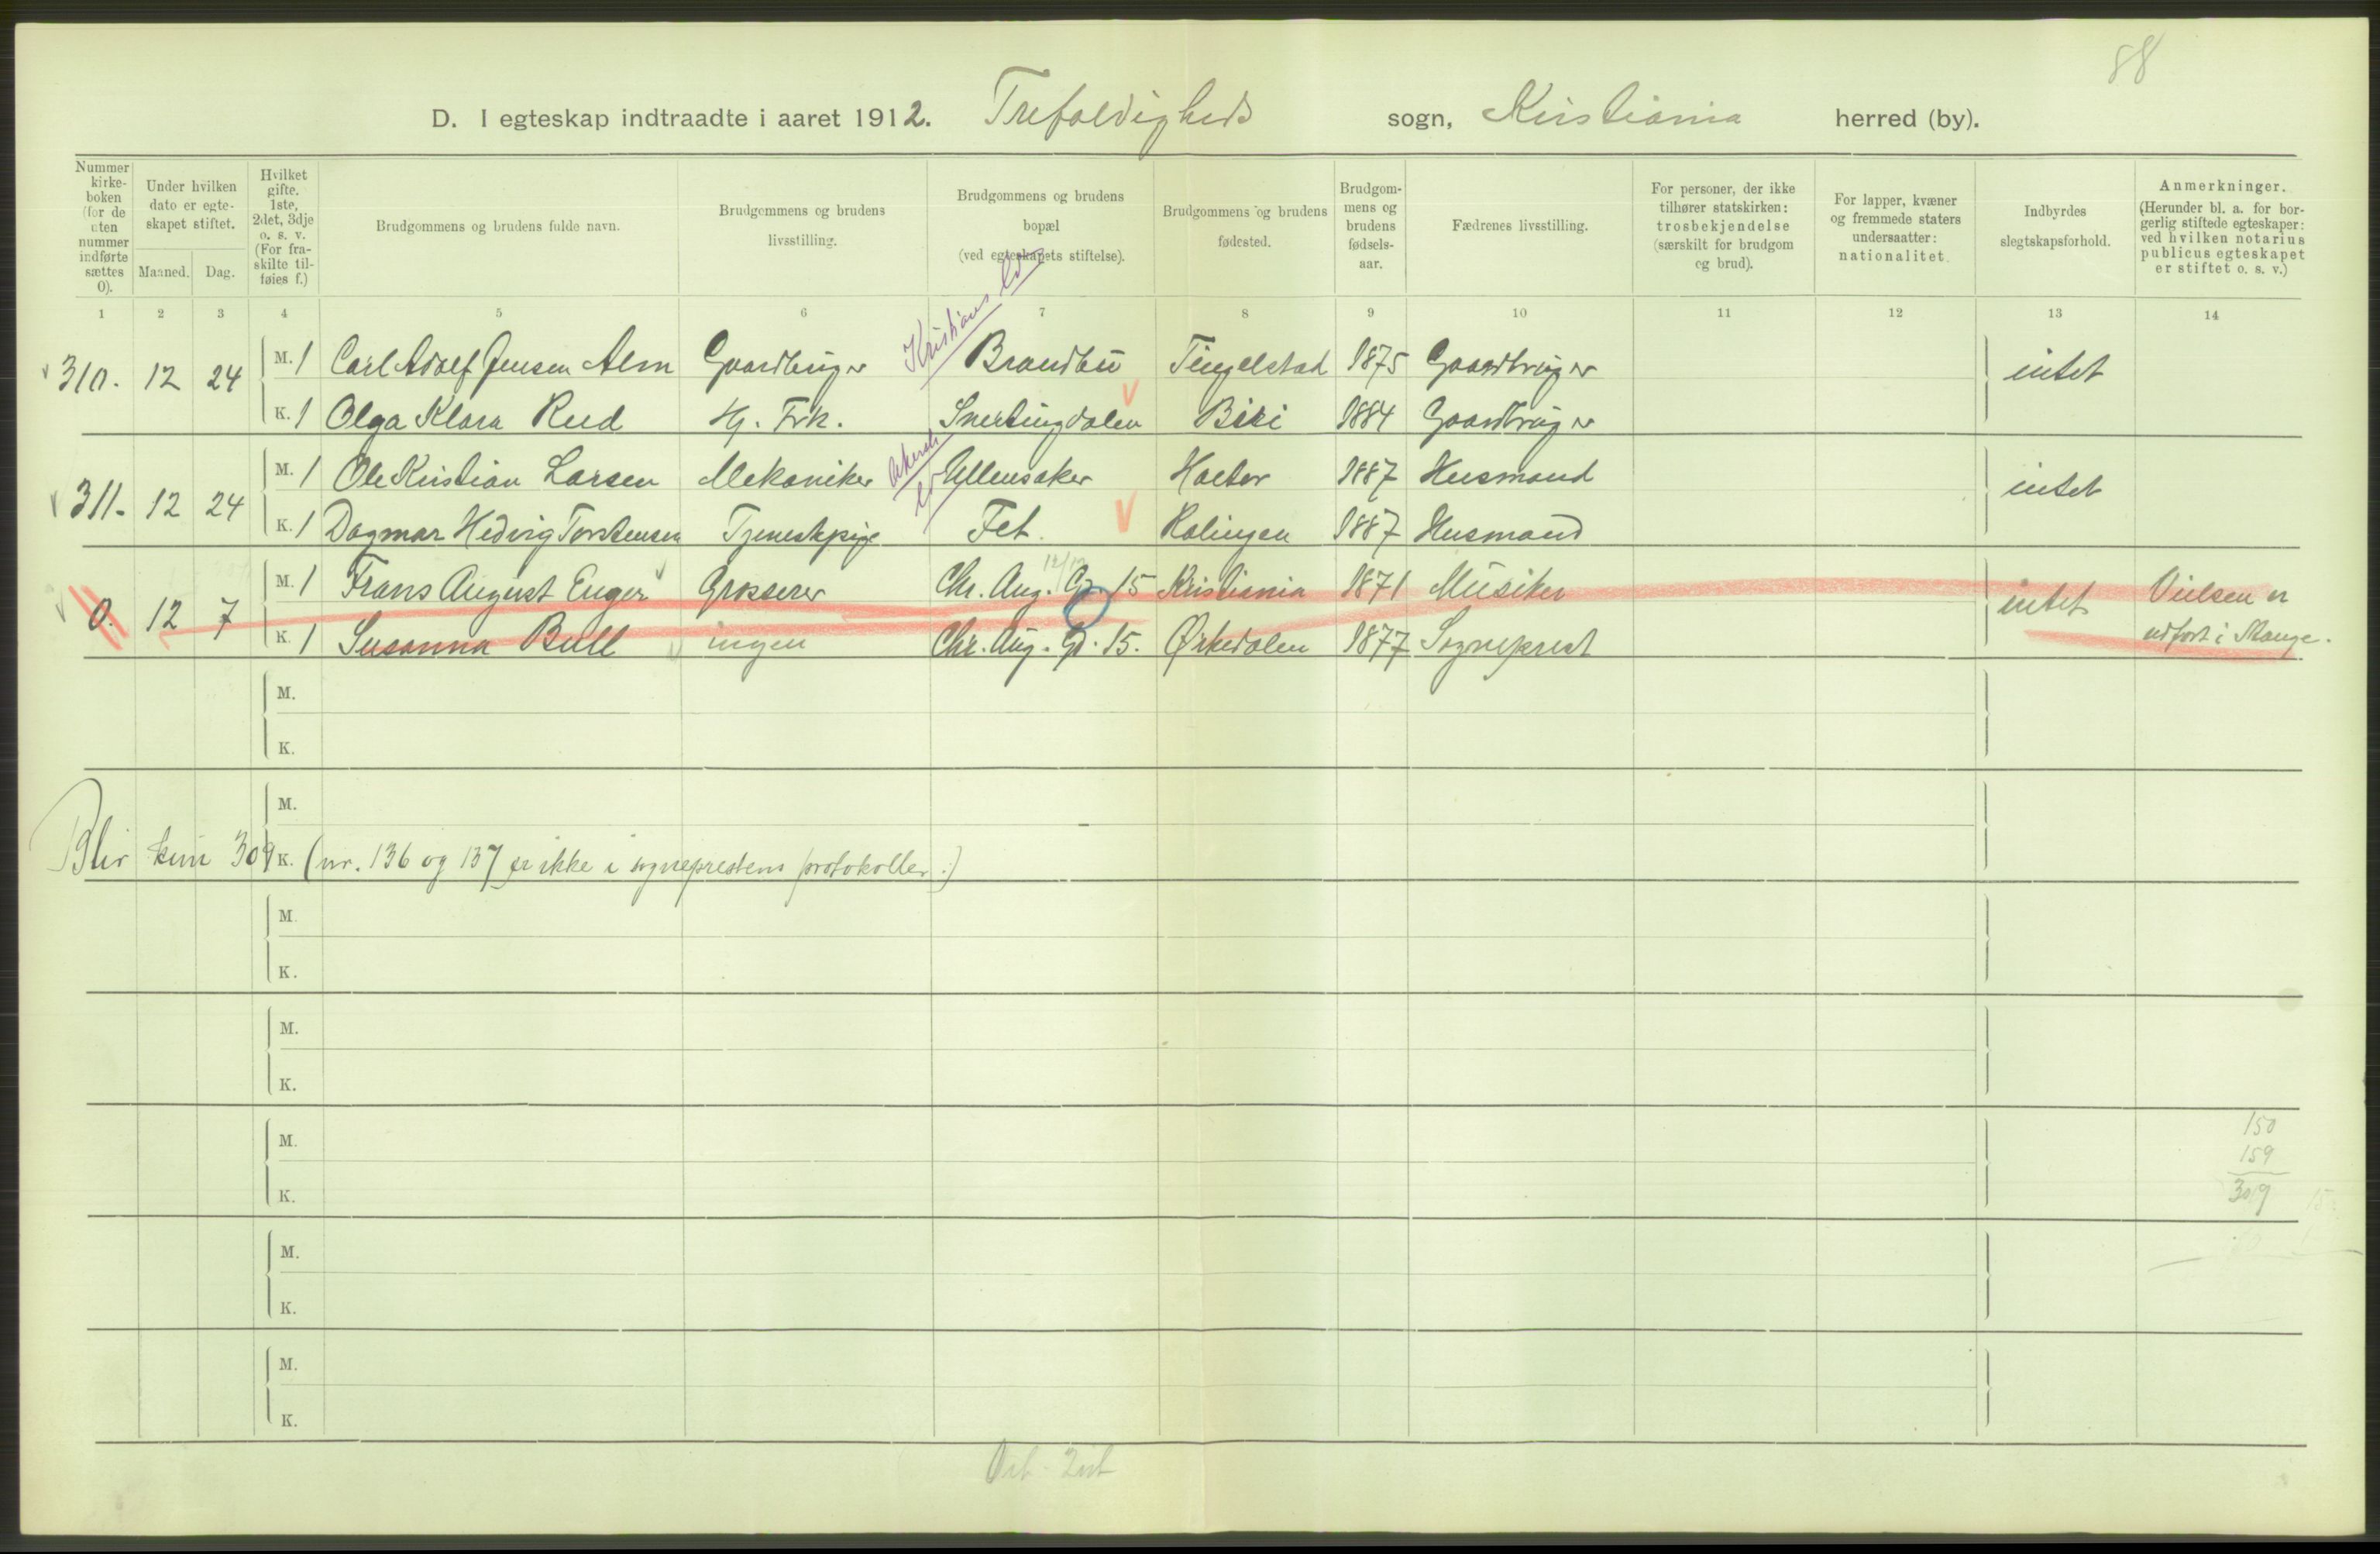 88
D. I egteskap indtraadte i aaret 1912. Trefoldigheds sogn, Kristiania herred (by).
Nummer kirke-boken (for de uten nummer indførte sættes 0).
Under hvilken dato er egte-skapet stiftet.
Maaned. Dag.
Hvilket gifte. 1ste, 2det, 3dje o. s. v. (For fra-skilte til-føies f.)
Brudgommens og brudens fulde navn.
Brudgommens og brudens livsstilling.
Brudgommens og brudens bopæl (ved egteskapets stiftelse).
Brudgommens og brudens fødested.
Brudgom-mens og brudens fødsels-aar.
Fædrenes livsstilling.
For personer, der ikke tilhører statskirken: trosbekjendelse (særskilt for brudgom og brud).
For lapper, kvæner og fremmede staters undersaatter: nationalitet.
Indbyrdes slegtskapsforhold.
Anmerkninger. (Herunder bl. a. for bor-gerlig stiftede egteskaper: ved hvilken notarius publicus egteskapet er stiftet o. s. v.)
1 2 3 4 5 6 7 8 9 10 11 12 13 14
310. 12 24 M. 1 Carl Adolf Jensen Alm Gaardbruger Kristians Brandbu Tingelstad 1875 Gaardbruger intet
K. 1 Olga Klara Rud Hj. Frk. Snertingdalen Biri 1884 Gaardbruger
311. 12 24 M. 1 Ole Kristian Larsen Mekaniker Akersh Ullensaker Holter 1887 Husmand intet
K. 1 Dagmar Hedvig Torstensen Tjenestepige Fet. Rælingen 1887 Husmand
0. 12 7 M. 1 Frans August Enger Grosserer Chr. Aug. Gd 15 Kristiania 1871 Musiker intet Vielsen er
K. 1 Susanna Bull ingen Chr. Aug. Gd. 15. Ørkedalen 1877 Sogneprest utført i Stange.
M.
K.
M.
Blir kun 309 K. (nr. 136 og 137 er ikke i sogneprestens protokoller.)
M.
K.
M.
K.
M.
K.
150
159
309
M.
K.
M.
K.